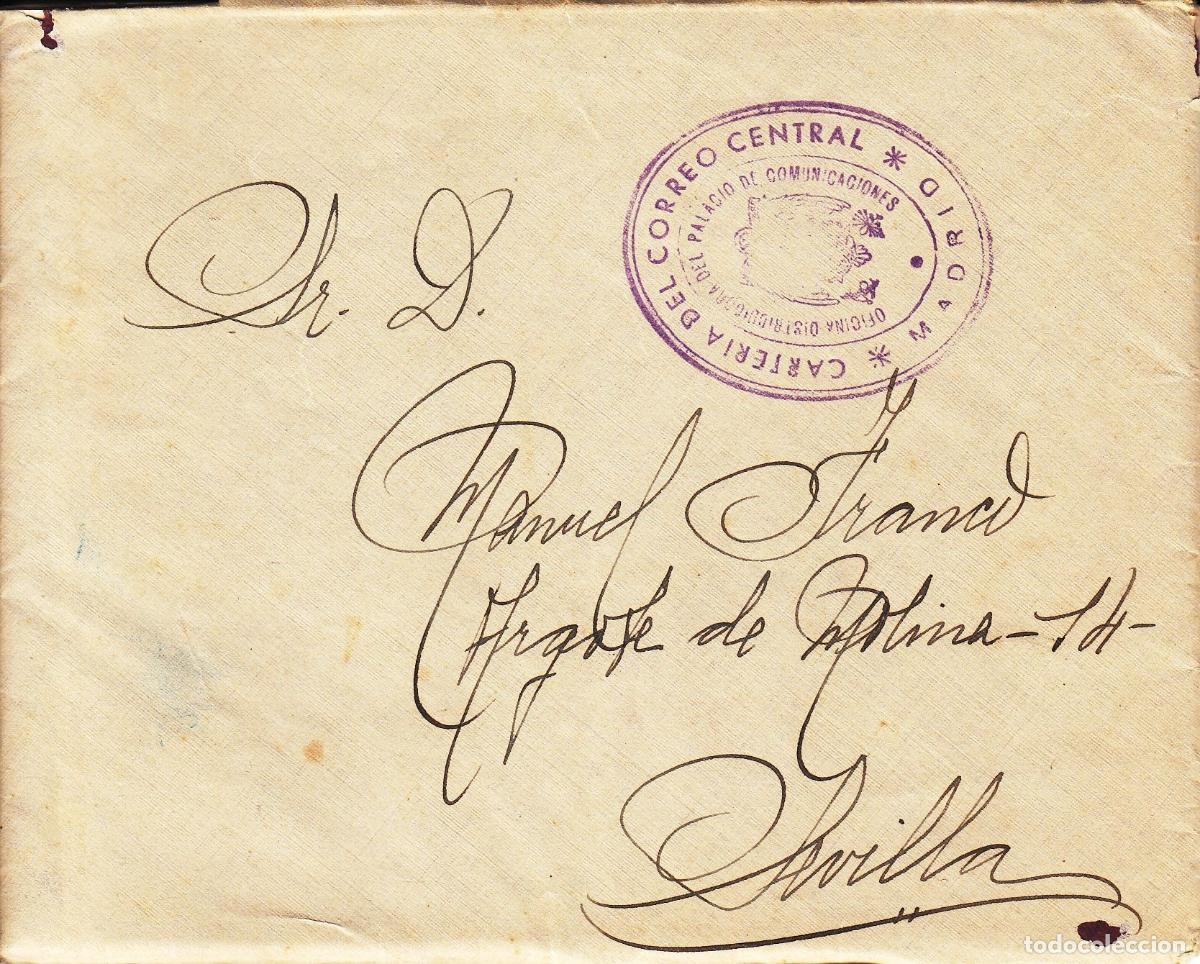 CARTERIA DEL CORREO CENTRAL * MADRID *
OFICINA DISTRIBUIDORA DEL PALACIO DE COMUNICACIONES
Sr. D.
Manuel Franco
Argote de Molina - 14 -
Sevilla
todocoleccion